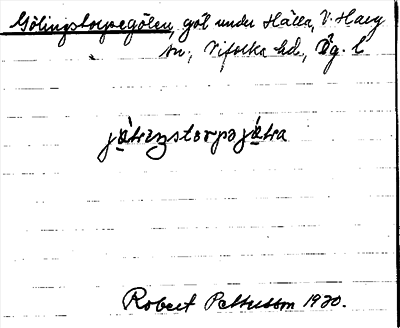 Gölingstorpegölen, göl under Hälla, V. Harg
sn, Vifolka hd, Ög. l
jä̀lıŋstorpəjä̀lɑ
Robert Pettersson 1930.